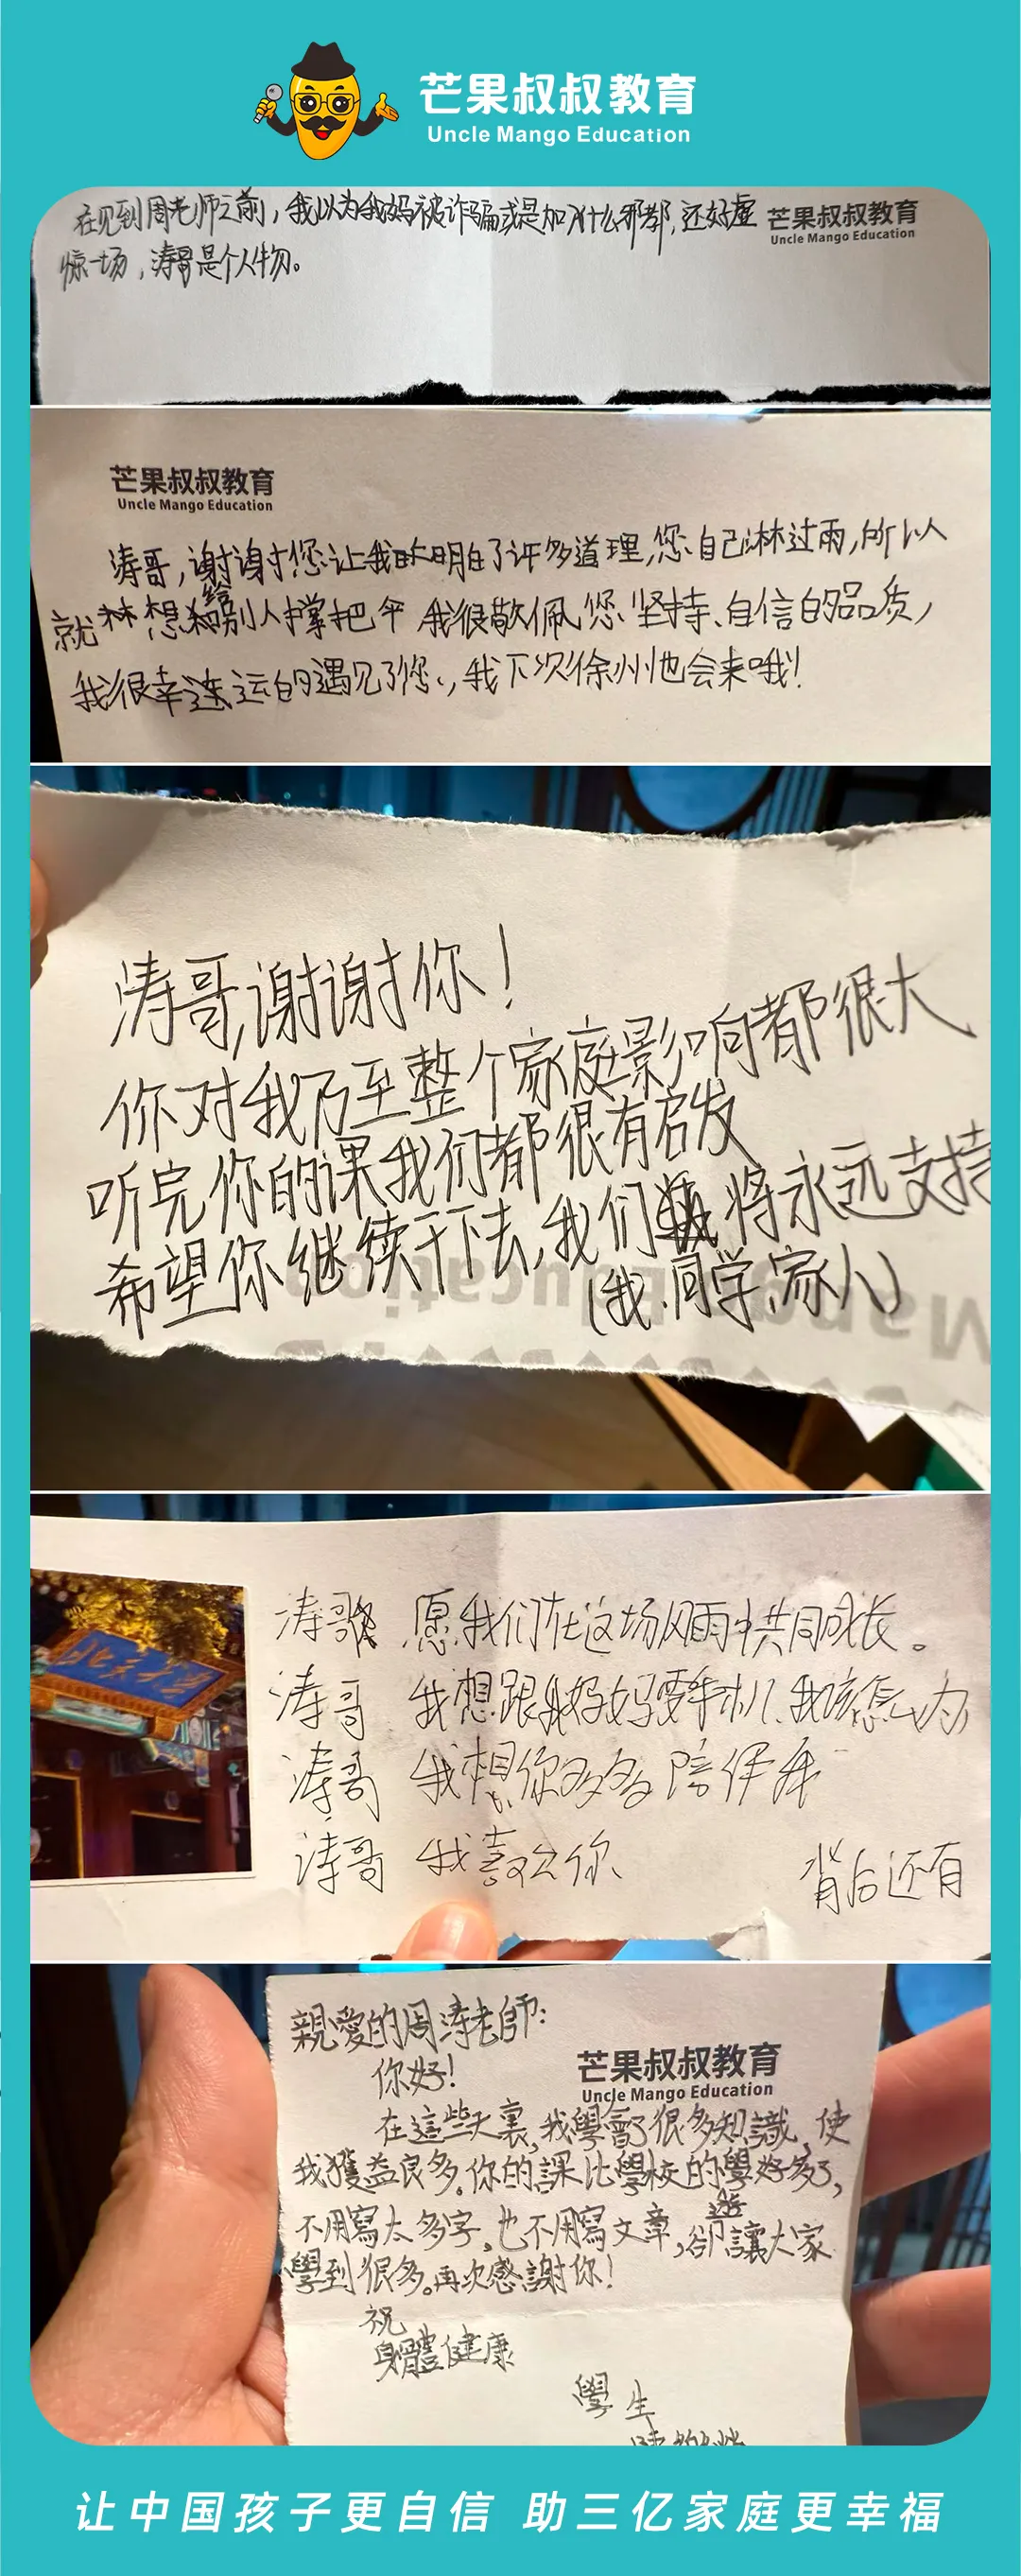 芒果叔叔教育
Uncle Mango Education
在见到周老师之前，我以为我妈被诈骗或是加入什么邪教，还好虚
芒果叔叔教育
Uncle Mango Education
惊一场，涛哥是个人物。
芒果叔叔教育
Uncle Mango Education
涛哥，谢谢您让我明白了许多道理，您自己淋过雨，所以
就想给别人撑把伞 我很敬佩您坚持、自信的品质，
我很幸运的遇见了您，我下次徐州也会来哦！
涛哥，谢谢你！
你对我乃至整个家庭影响都很大
听完你的课我们都很有启发
希望你继续干下去，我们将永远支持
（我、同学、家人）
涛哥 愿我们在这场风雨中共同成长。
涛哥 我想跟我妈妈要手机、我该怎么办
涛哥 我想你多多陪伴我
涛哥 我喜欢你
背后还有
親愛的周涛老師：
你好！
芒果叔叔教育
Uncle Mango Education
在這些天裏，我學會了很多知識，使
我獲益良多。你的課比學校的學好多了，
不用寫太多字，也不用寫文章，卻讓大家
學到很多。再次感謝你！
祝
身體健康
學生
让中国孩子更自信 助三亿家庭更幸福